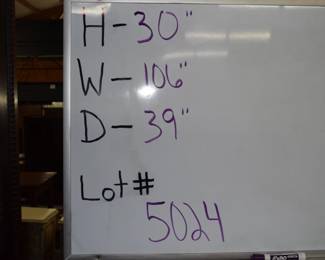 H-30"
W-106"
D-39"
Lot#
5024
EXPO